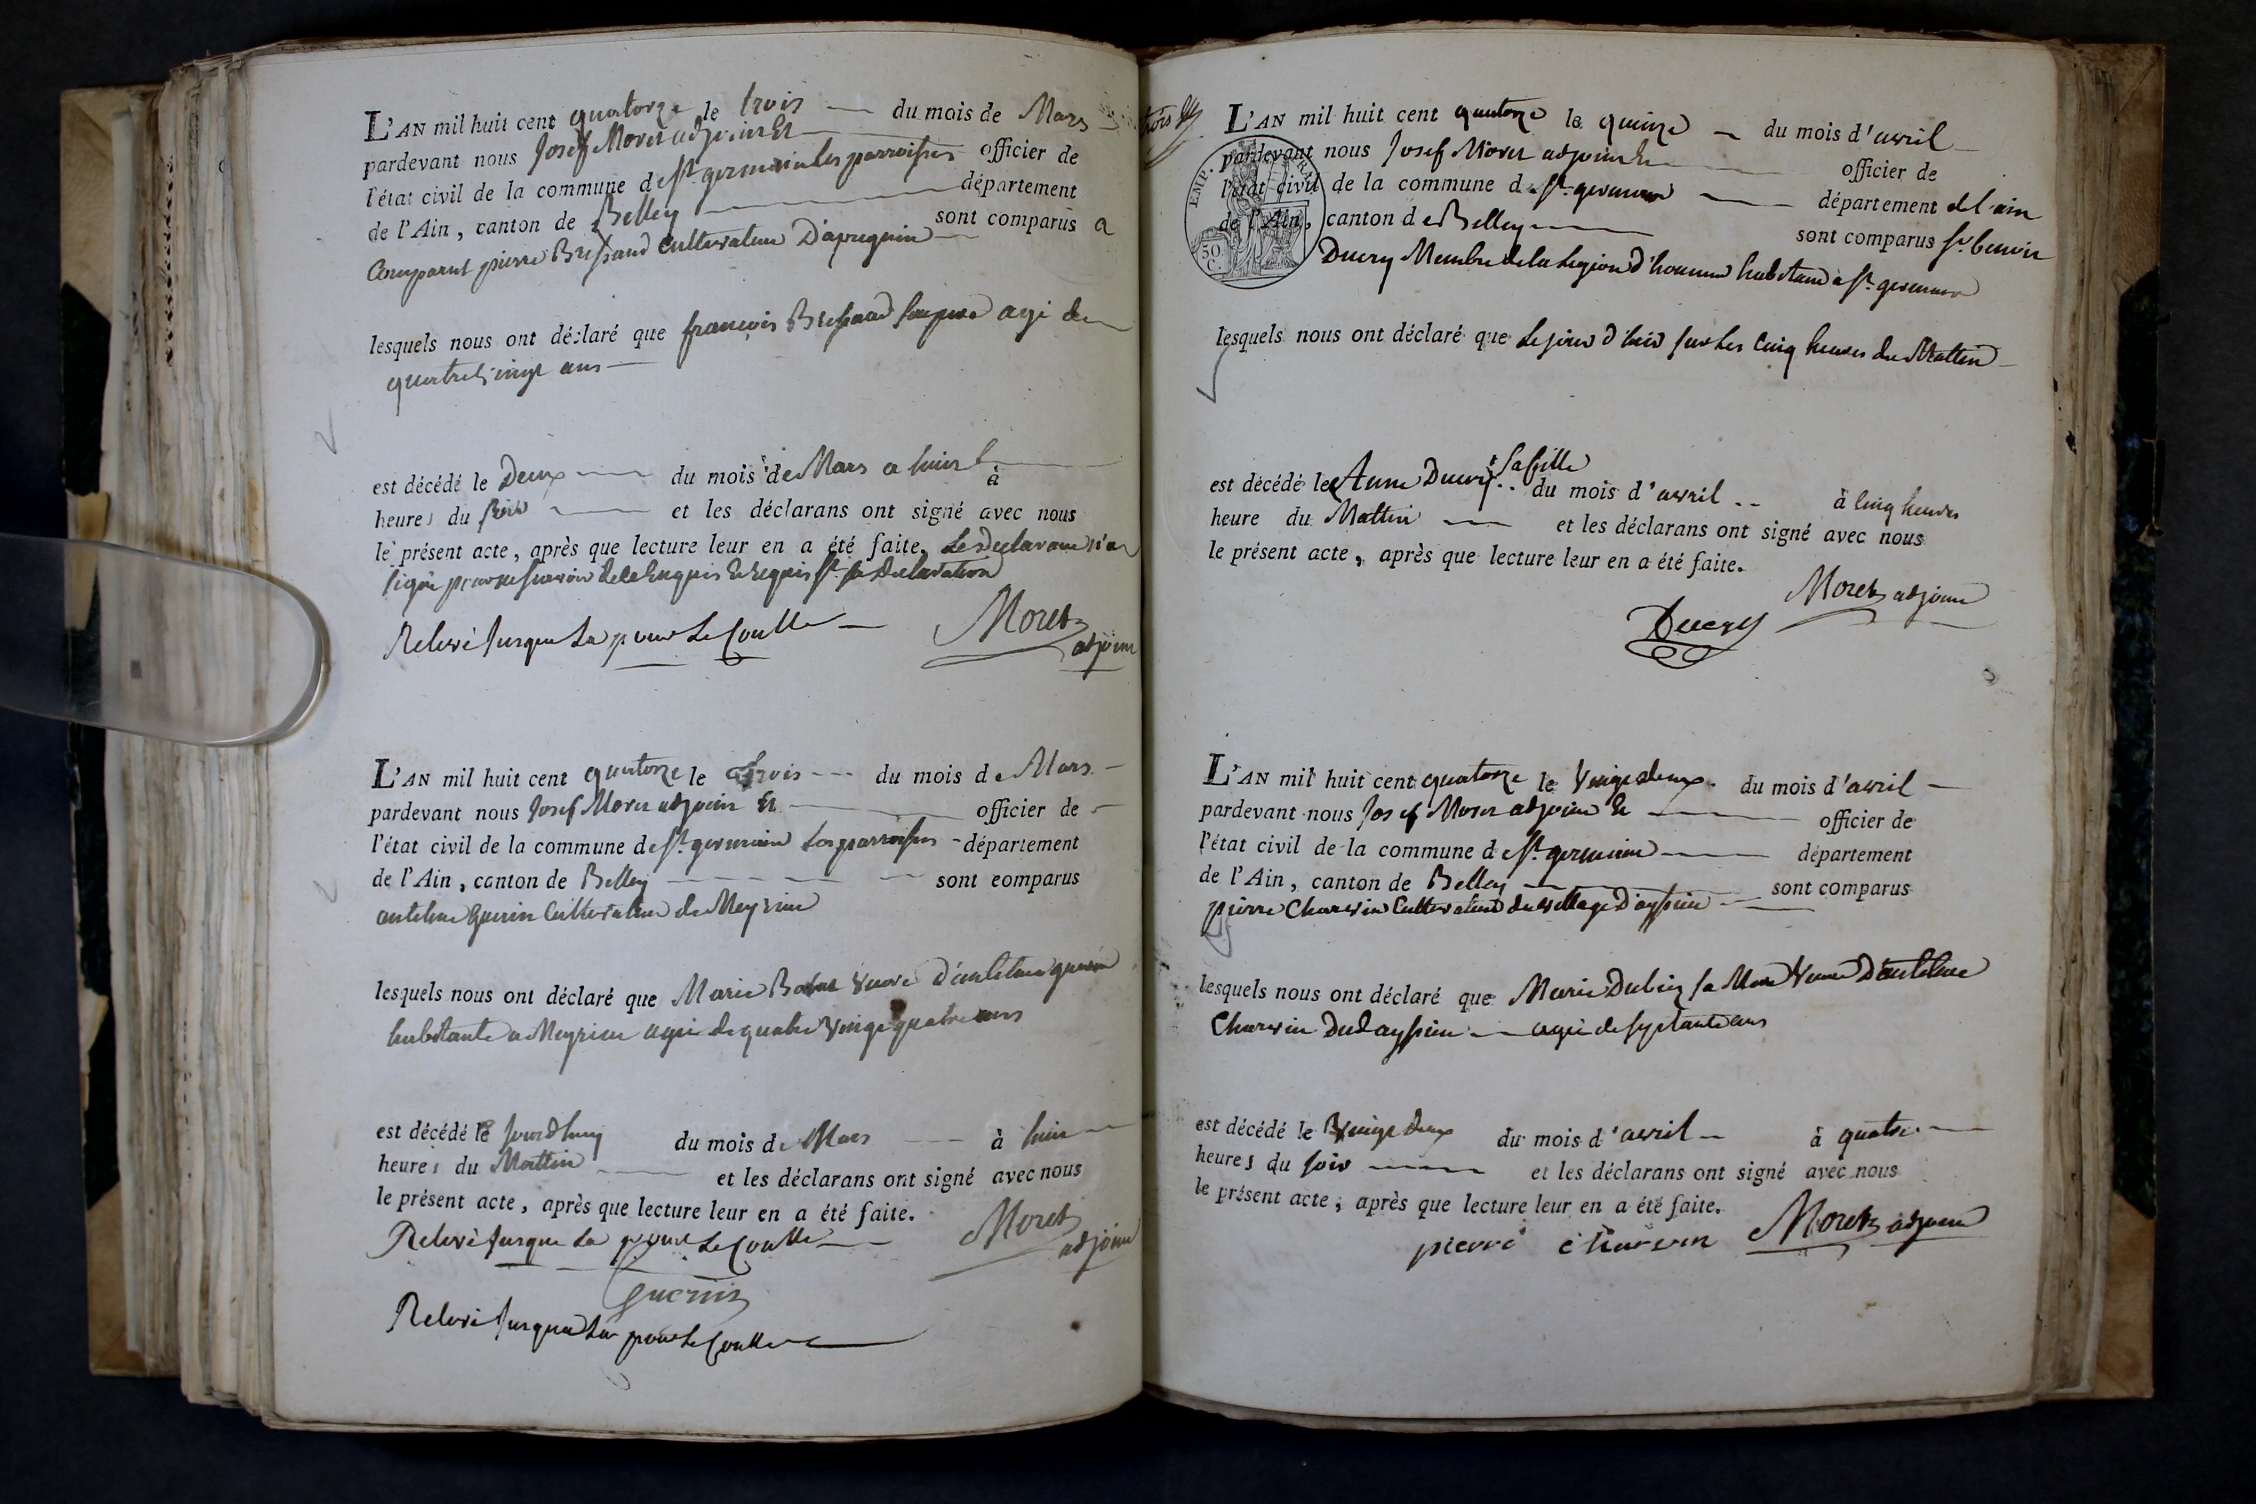 L'AN mil huit cent quatorze le trois du mois de Mars
pardevant nous Josef Moret adjoint Et
officier de
l'état civil de la commune de St germain les parroisses
département
de l'Ain, canton de Belley
sont comparus a
Comparut pierre Bressand Cultivateur
lesquels nous ont déclaré que françois Bressand son pere agé de
quatre vingt ans
est décédé le Deux du mois de Mars a huit à
heures du soir et les déclarans ont signé avec nous
le présent acte, après que lecture leur en a été faite. Le Declarant n'a
signé pour ne savoir de ce Enquis Et Requis sa Declaration
Relevé Jusque La pour Le Conte
Moret
adjoint
L'AN mil huit cent quatorze le trois du mois de Mars
pardevant nous Josef Moret adjoint Et officier de
l'état civil de la commune de St germain Les parroisses département
de l'Ain, canton de Belley sont comparus
anthelme Guerin Cultivateur de Meyrieu
lesquels nous ont déclaré que Marie veuve D'anthelme guerin
habitante a Meyrieu agée de quatre Vingt quatre ans
est décédé le jourdhuy du mois de Mars à huit
heures du Mattin et les déclarans ont signé avec nous
le présent acte, après que lecture leur en a été faite.
Relevé Jusque La pour Le Conte
Moret
adjoint
Guerin
Relevé Jusque La pour Le Conte
L'AN mil huit cent quatorze le quinze du mois d'avril
pardevant nous Josef Moret adjoint Et officier de
l'état civil de la commune de St germain département de l'ain
de l'Ain, canton de Belley sont comparus Sr benoit
Ducry Membre de la Legion d'honneur habitant a St germain
EMP.
50
C.
lesquels nous ont déclaré que Le jour d'hier sur Les Cinq heures du Mattin
est décédé le Anne Ducry sa fille du mois d'avril à Cinq heures
heure du Mattin et les déclarans ont signé avec nous
le présent acte, après que lecture leur en a été faite.
Moret adjoint
Ducry
L'AN mil huit cent quatorze le Vingt deux du mois d'avril
pardevant nous Josef Moret adjoint Et officier de
l'état civil de la commune de St germain département
de l'Ain, canton de Belley sont comparus
pierre Charvin Cultivateur du village D'appieu
lesquels nous ont déclaré que Marie Dubiez sa Mere Veuve D'anthelme
Charvin agée de septante ans
est décédé le Vingt deux du mois d'avril à quatre
heures du soir et les déclarans ont signé avec nous
le présent acte, après que lecture leur en a été faite.
pierre charvin Moret adjoint